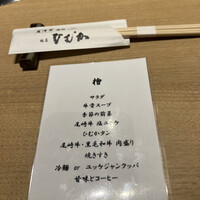 ひむか
檜
サラダ
牛骨スープ
季節の前菜
尾崎牛 塩ユッケ
ひむかタン
尾崎牛・黒毛和牛 肉盛り
焼きすき
冷麺 or ユッケジャンクッパ
甘味とコーヒー